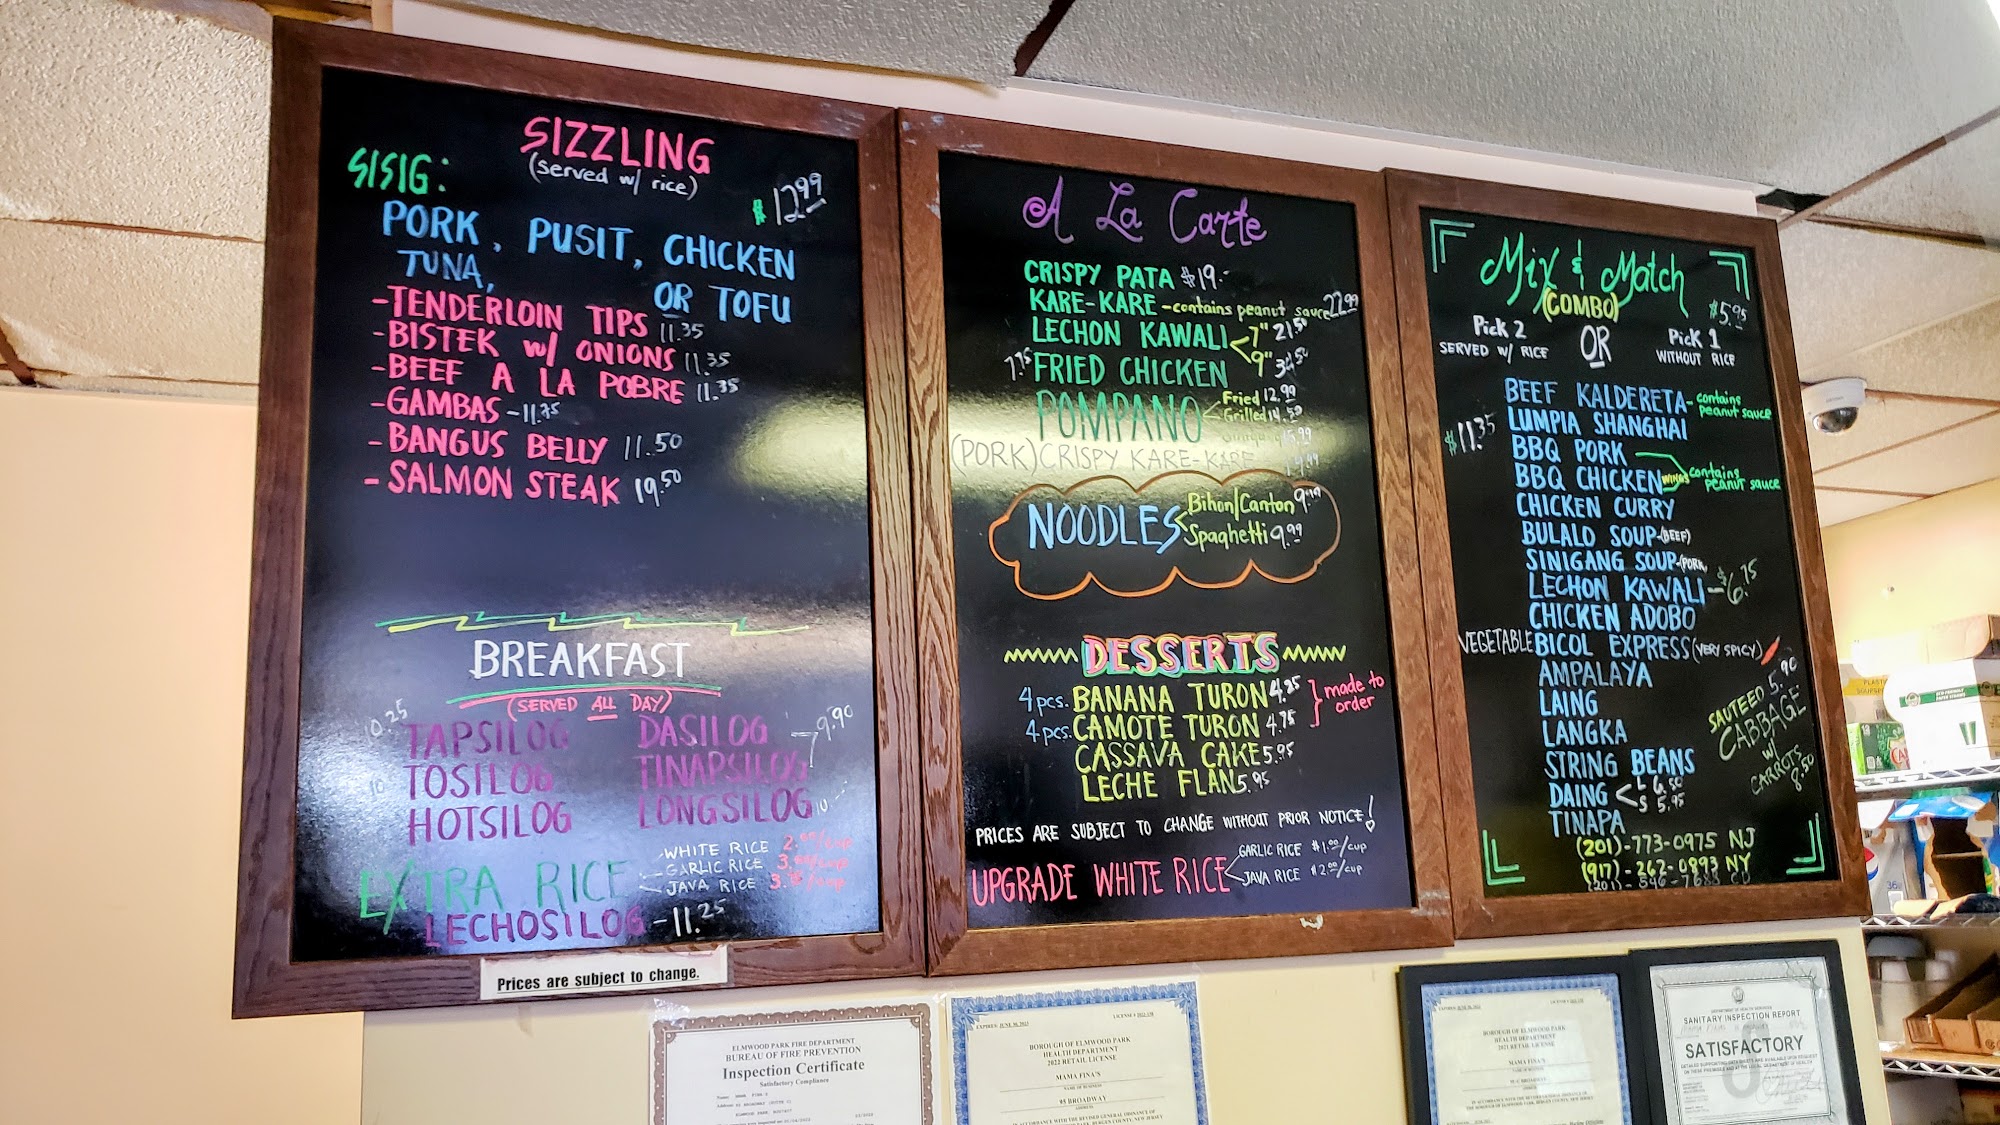 SIZZLING
(served w/ rice)
SISIG:
$12.99
PORK, PUSIT, CHICKEN
TUNA, OR TOFU
-TENDERLOIN TIPS 11.35
-BISTEK w/ ONIONS 11.35
-BEEF A LA POBRE 11.35
-GAMBAS -11.75
-BANGUS BELLY 11.50
-SALMON STEAK 19.50
BREAKFAST
(SERVED ALL DAY)
10.25 TAPSILOG DASILOG 9.90
10 TOSILOG TINAPSILOG
HOTSILOG LONGSILOG 10
EXTRA RICE
WHITE RICE 2.00/cup
GARLIC RICE /cup
JAVA RICE /cup
LECHOSILOG -11.25
Prices are subject to change.
A La Carte
CRISPY PATA $19.-
KARE-KARE -contains peanut sauce 22.99
LECHON KAWALI 7" 21.50
9"
7.75 FRIED CHICKEN
POMPANO Fried 12.99
Grilled 14.50
(PORK) CRISPY KARE-KARE
NOODLES Bihon/Canton
Spaghetti 9.99
DESSERTS
4 pcs. BANANA TURON 4.25
4 pcs. CAMOTE TURON 4.75
made to order
CASSAVA CAKE 5.95
LECHE FLAN 5.95
PRICES ARE SUBJECT TO CHANGE WITHOUT PRIOR NOTICE!
UPGRADE WHITE RICE
GARLIC RICE $1.00/cup
JAVA RICE $2.00/cup
Mix & Match
(COMBO)
$5.95
Pick 2 OR Pick 1
SERVED W/ RICE WITHOUT RICE
$11.35
BEEF KALDERETA - contains peanut sauce
LUMPIA SHANGHAI
BBQ PORK
BBQ CHICKEN WINGS contains peanut sauce
CHICKEN CURRY
BULALO SOUP-(BEEF)
SINIGANG SOUP-(PORK)
LECHON KAWALI -$6.75
CHICKEN ADOBO
VEGETABLE BICOL EXPRESS (VERY SPICY)
AMPALAYA
LAING
LANGKA
STRING BEANS
DAING < L 6.50
S 5.95
TINAPA
SAUTEED 5.90
CABBAGE
W/
CARROTS
8.50
(201)-773-0975 NJ
(917)-262-0893 NY
ELMWOOD PARK FIRE DEPARTMENT
BUREAU OF FIRE PREVENTION
Inspection Certificate
Satisfactory Compliance
EXPIRES: JUNE 30, 2023
BOROUGH OF ELMWOOD PARK
HEALTH DEPARTMENT
2022 RETAIL LICENSE
MAMA FINA'S
NAME OF BUSINESS
95 BROADWAY
ADDRESS
BOROUGH OF ELMWOOD PARK
HEALTH DEPARTMENT
2021 RETAIL LICENSE
MAMA FINA'S
SANITARY INSPECTION REPORT
SATISFACTORY